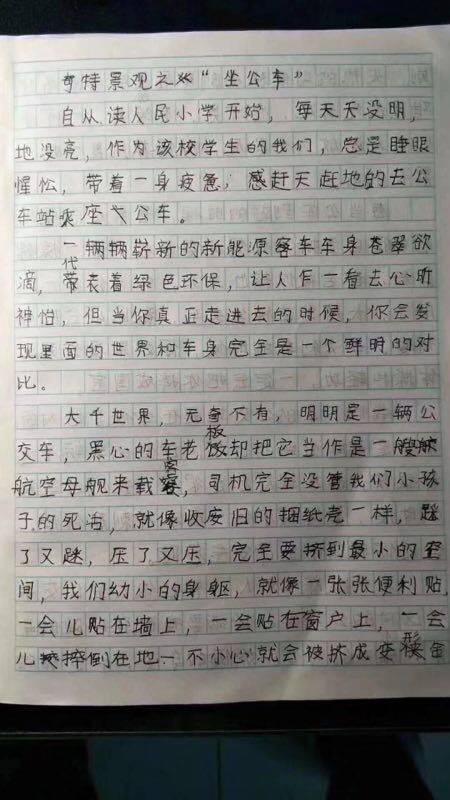 奇特景观之“坐公车”
自从读人民小学开始，每天天没明，
地没亮，作为该校学生的我们，总是睡眼
惺忪，带着一身疲惫，感赶天赶地的去公
车站乘座公车。
一辆辆崭新的新能源客车车身苍翠欲
滴，代表着绿色环保，让人乍一看去心旷
神怡，但当你真正走进去的时候，你会发
现里面的世界和车身完全是一个鲜明的对
比。
大千世界，无奇不有，明明是一辆公
交车，黑心的车老板却把它当作是一艘
航空母舰来载客，司机完全没管我们小孩
子的死活，就像收废旧的捆纸壳一样，
了又，压了又压，完全要挤到最小的空
间，我们幼小的身躯，就像一张张便利贴，
一会儿贴在墙上，一会贴在窗户上，一会
儿摔倒在地一不小心就会被挤成变形金